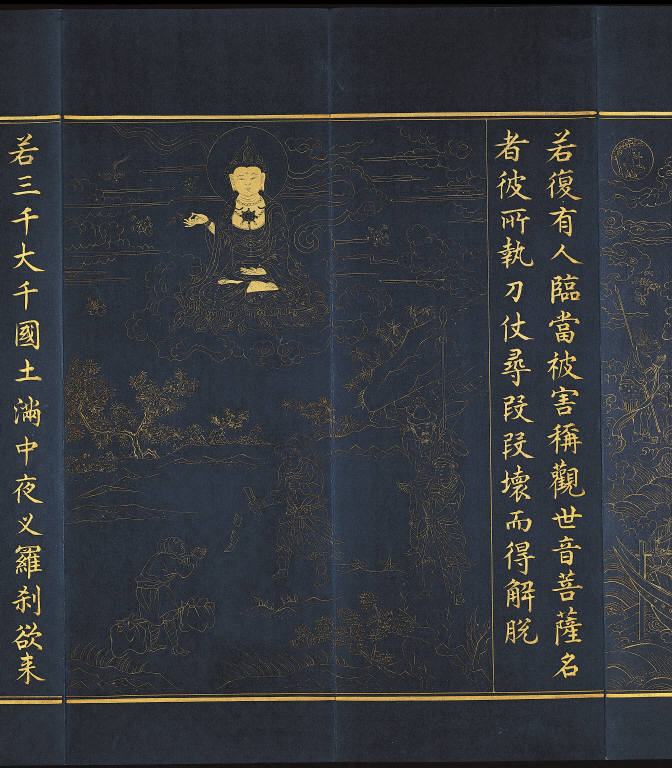 若復有人臨當被害稱觀世音菩薩名
者彼所執刀仗尋段段壞而得解脫
若三千大千國土滿中夜叉羅剎欲来